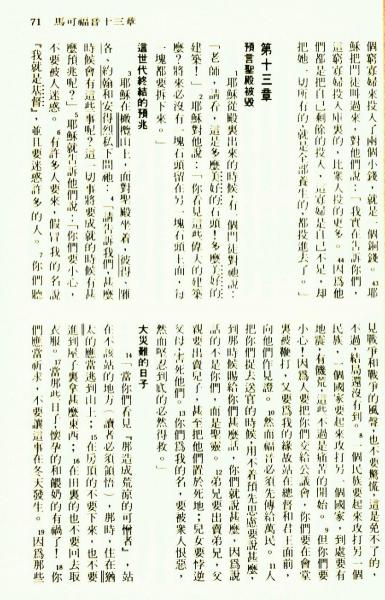 71 馬可福音十三章
個窮寡婦來投入了兩個小錢,就是一個銅錢。43耶
穌把門徒叫過來,對他們說:「我實在告訴你們,
這窮寡婦投入庫裏的,比衆人投的更多。44因爲他
們都是把自己剩餘的投入,這寡婦是自己不足,却
把她一切所有的,就是全部養生的,都投進去了。」
第十三章
預言聖殿被毀
1耶穌從殿裏出來的時候,有一個門徒對祂說:
「老師,請看,這是多麼美好的石頭!多麼美好的
建築!」2耶穌對他說:「你看見這些偉大的建築
麼?將來必沒有一塊石頭留在另一塊石頭上面,每
一塊都要拆下來。」
這世代終結的預兆
3耶穌在橄欖山上,面對聖殿坐着,彼得、雅
各、約翰和安得烈私下問祂:4「請告訴我們,甚麼
時候會有這些事呢?這一切事將要成就的時候有甚
麼預兆呢?」5耶穌就告訴他們說:「你們要小心,
不要被人迷惑。6有許多人要來,假冒我的名說
『我就是基督』,並且要迷惑許多的人。7你們聽
見戰爭和戰爭的風聲,也不要驚慌,這是免不了的,
不過,結局還沒有到。8一個民族要起來攻打另一個
民族,一個國家要起來攻打另一個國家,到處要有
地震,有饑荒;這些不過是痛苦的開始。9但你們要
小心!因爲人要把你們交給公議會,你們要在會堂
裏被鞭打,又要爲我的緣故站在總督和君王面前,
向他們作見證。10然而福音必須先傳給萬民。11人
把你們捉去送官的時候,用不着預先思慮要說甚麼,
到那時候賜給你們甚麼話,你們就說甚麼;因爲說
話的不是你們,而是聖靈。12弟兄要出賣弟兄,父
親要出賣兒子,甚至把他們置於死地;兒女要悖逆
父母,害死他們。13你們爲我的名,要被衆人恨惡,
然而堅忍到底的必然得救。
大災難的日子
14「當你們看見『那造成荒涼的可憎者』,站
在不該站的地方(讀者必須領悟),那時,住在猶
太的應當逃到山上;15在房頂的不要下來,也不要
進到屋子裏拿甚麼東西;16在田裏的也不要回去取
衣服。17當那些日子,懷孕的和餵奶的有禍了!18你
們應當祈求,不要讓這事在冬天發生。19因爲那些